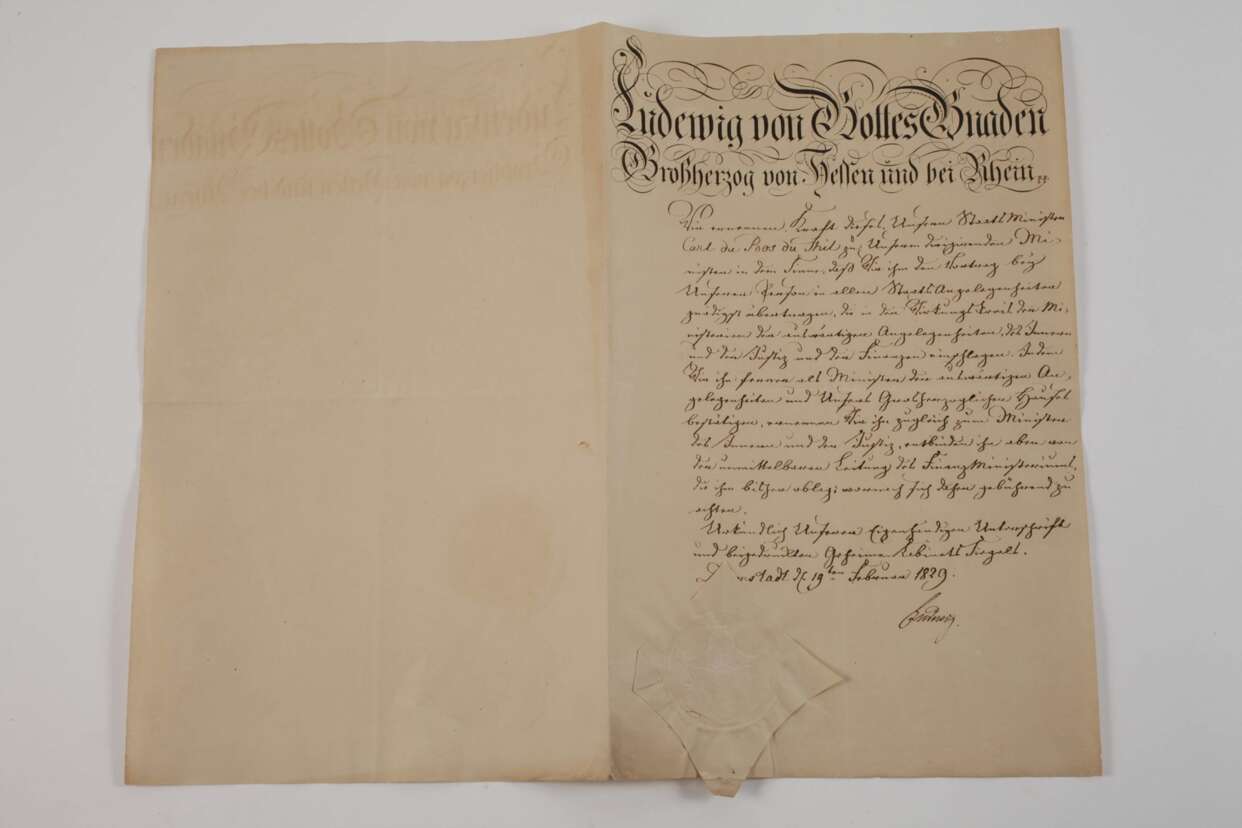 Ludewig von Gottes Gnaden
Großherzog von Hessen und bei Rhein
Wir ernennen, Kraft dieses, Unseren StaatsMinister
Carl du Bos du Thil zu Unserem dirigirenden Mi-
nister in dem Sinne, daß Wir ihm den Vortrag bey
Unserer Person in allen StaatsAngelegenheiten
gnädigst übertragen, die in den WirkungsKreis der Mi-
nisterien der auswärtigen Angelegenheiten, des Innern
und der Justiz und der Finanzen einschlagen. Indem
Wir ihn ferner als Minister der auswärtigen An-
gelegenheiten und Unseres Grosherzoglichen Hauses
bestätigen, ernennen Wir ihn zugleich zum Minister
des Innern und der Justiz, entbinden ihn aber von
der unmittelbaren Leitung des FinanzMinisteriums,
die ihm bisher oblag; wornach sich daher gebührend zu
achten.
Urkundlich Unserer Eigenhändigen Unterschrift
und beigedruckten Geheimen Cabinets Siegels.
D  mstadt d. 19ten Februar 1829.
Ludewig.